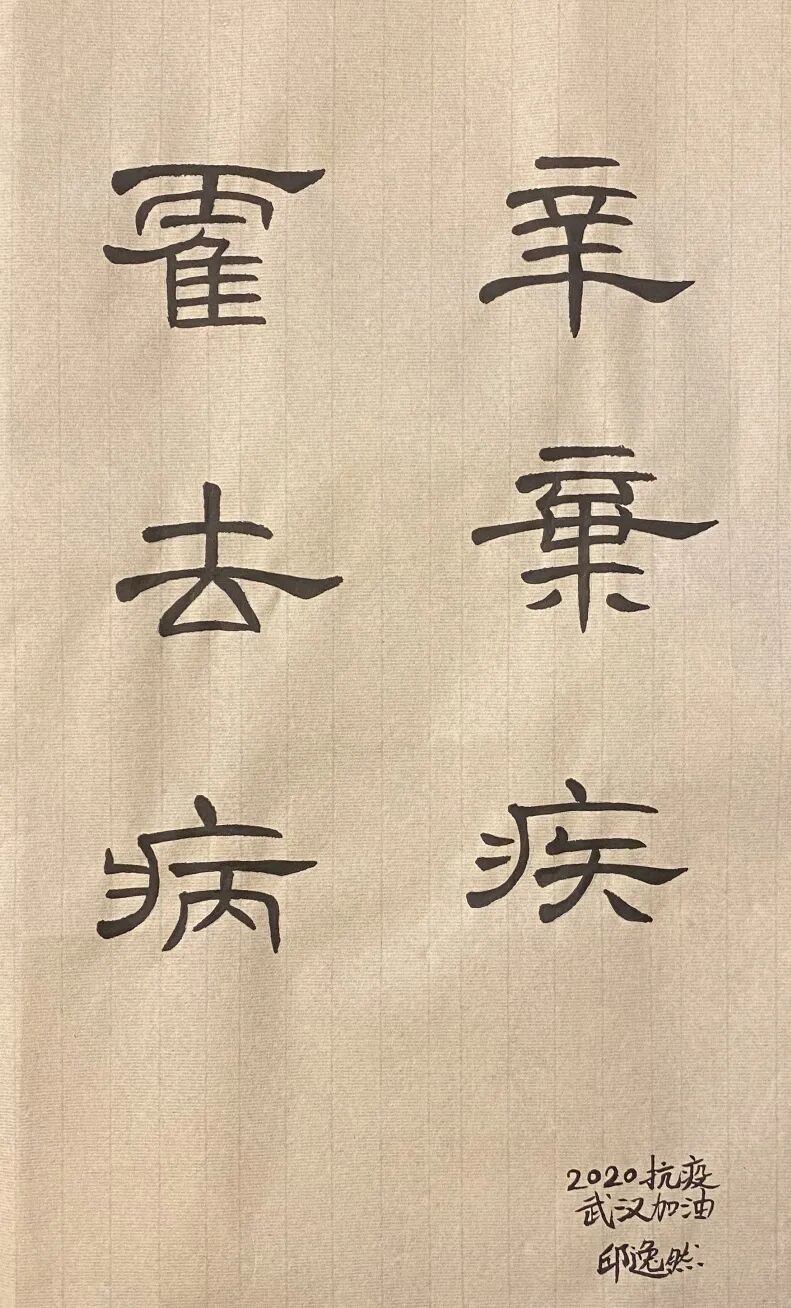 辛棄疾
霍去病
2020抗疫
武汉加油
邱逸然